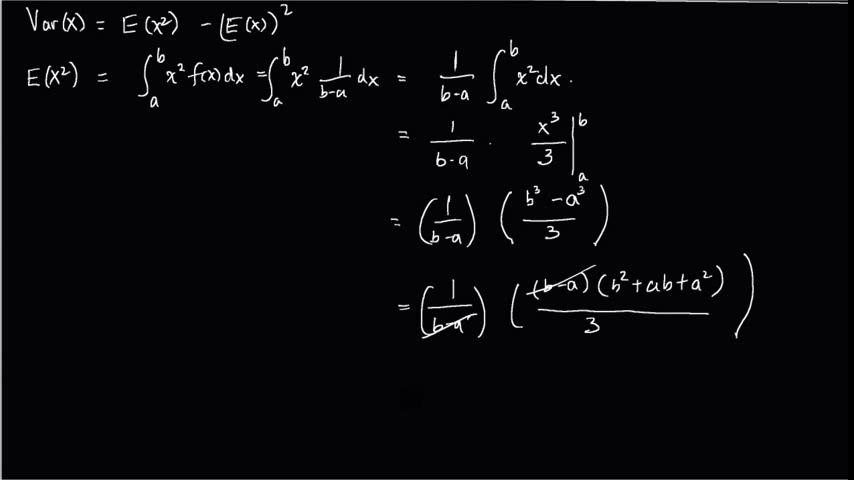 Var(x) = E(x²) - (E(x))²
E(x²) = ∫_a^b x² f(x) dx = ∫_a^b x² 1/(b-a) dx = 1/(b-a) ∫_a^b x² dx .
= 1/(b-a) · x³/3 |_a^b
= (1/(b-a)) ((b³ - a³)/3)
= (1/(b-a)) ((b-a)(b² + ab + a²)/3)